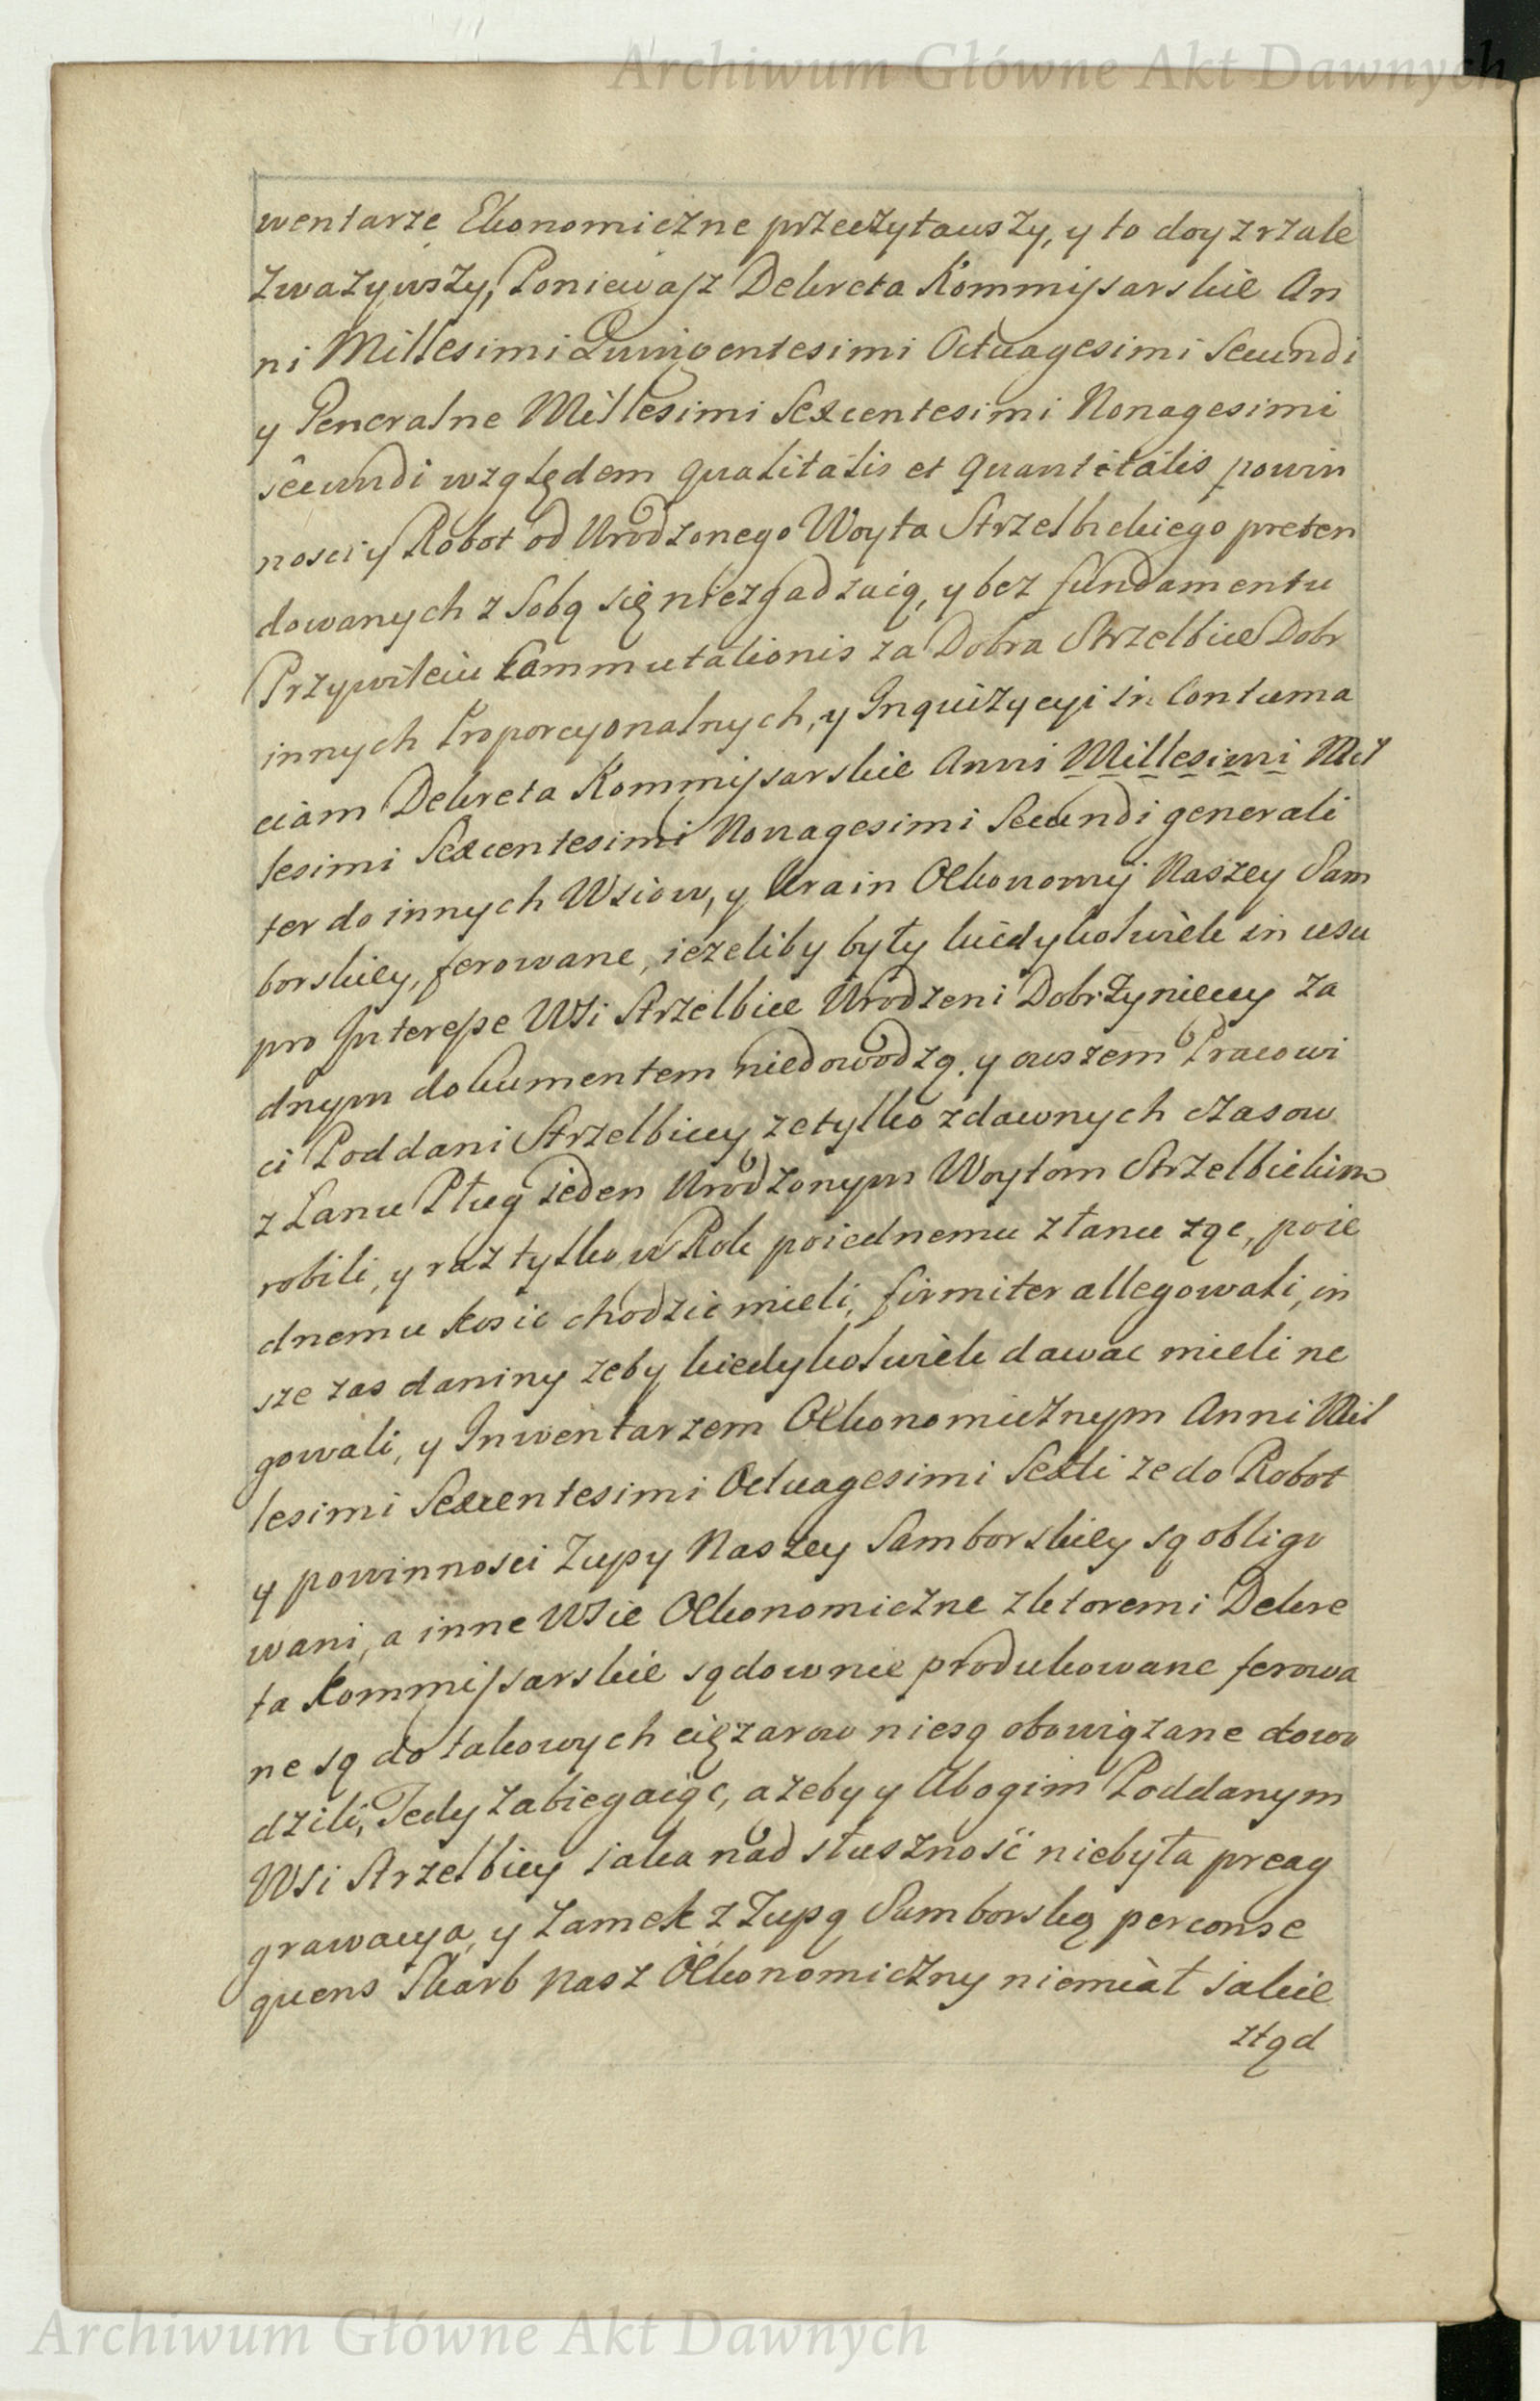 Archiwum Główne Akt Dawnych
wentarze Ekonomiczne przeczytawszy, y to doyzrzale
zwazywszy, Poniewasz Dekreta Kommissarskie An
ni Millesimi Quingentesimi Octuagesimi Secundi
y Generalne Millesimi Sexcentesimi Nonagesimi
secundi względem qualitatis et quantitatis powin
nosci y Robot od Urodzonego Woyta Strzelbickiego preten
dowanych z sobą się niezgadzaią, y bez fundamentu
Przywileiu Commutationis za Dobra Strzelbice Dobr
innych Proporcyonalnych, y Inquizycyi in Contuma
ciam Dekreta Kommissarskie Anni Millesimi Mil
lesimi Sexcentesimi Nonagesimi Secundi generali
ter do innych Wsiow, y Krain Oekonomij Naszey Sam
borskiey, ferowane, iezeliby były kiedykolwiek in usu
pro Interesse Wsi Strzelbice Urodzeni Dobrzyniccy za
dnym dokumentem niedowodzą. y owszem Pracowi
ci Poddani Strzelbiccy ze tylko z dawnych czasow
z Lanu Pług ieden Urodzonym Woytom Strzelbickim
robili, y raz tylko w Rok poiednemu z łanu żąc, poie
dnemu kosic chodzic mieli, firmiter allegowali, in
sze zas daniny zeby kiedykolwiek dawac mieli ne
gowali, y Inwentarzem Oekonomicznym Anni Mil
lesimi Sexcentesimi Octuagesimi Sexti ze do Robot
y powinnosci Zupy Naszey Samborskiey są obligo
wani, a inne Wsie Oekonomiczne z ktoremi Dekre
ta Kommissarskie sądownie produkowane ferowa
ne są do takowych cięzarow niesą obowiązane dowo
dzili, Tedy zabiegaiąc, azeby y Ubogim Poddanym
Wsi Strzelbicy iaka nad słuszność niebyła preag
grawacya, y Zamek z Zupą Samborską per conse
quens Skarb nasz Oekonomiczny niemiał iakie
ztąd
Archiwum Główne Akt Dawnych